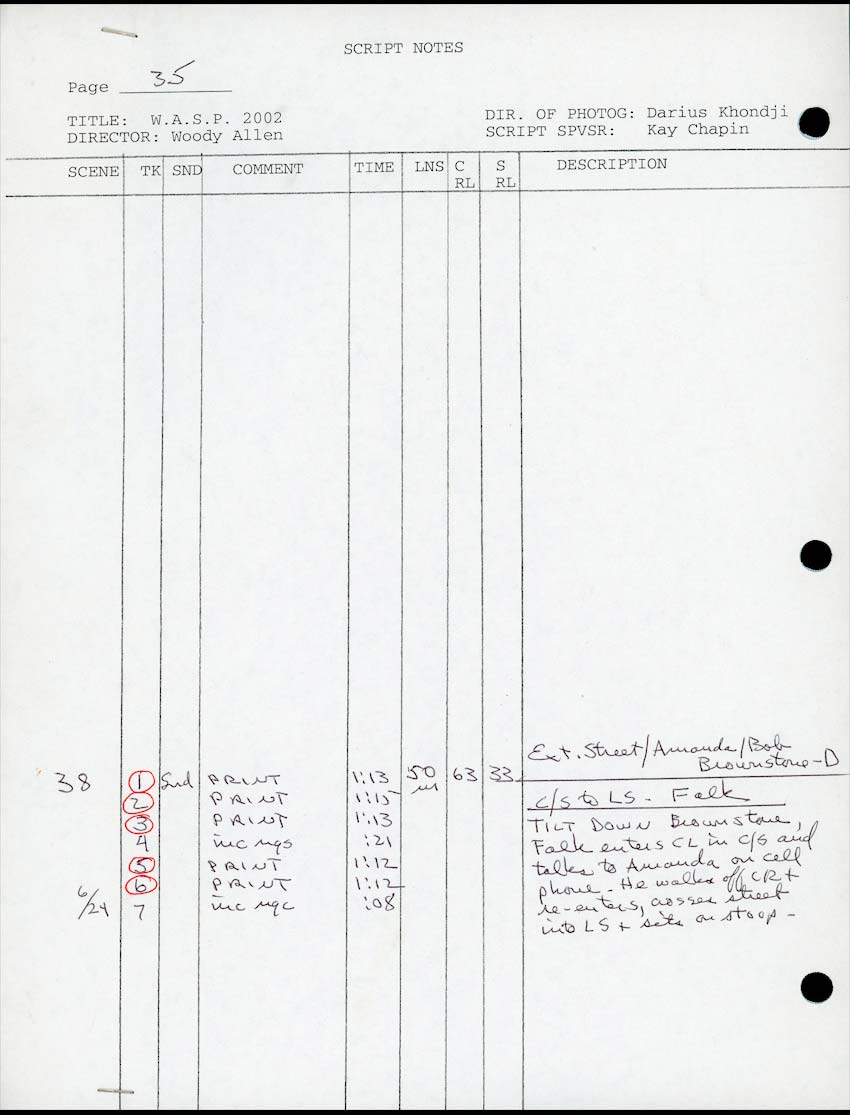 SCRIPT NOTES
Page 35
TITLE: W.A.S.P. 2002
DIRECTOR: Woody Allen
DIR. OF PHOTOG: Darius Khondji
SCRIPT SPVSR: Kay Chapin
SCENE TK SND COMMENT TIME LNS C RL S RL DESCRIPTION
Ext. Street/Amanda/Bob
Brownstone-D
38 1 Snd PRINT 1:13 50 m 63 33
2 PRINT 1:15
3 PRINT 1:13
4 inc ngs :21
5 PRINT 1:12
6 PRINT 1:12
6/24 7 inc ngc :08
C/S to LS - Falk
TILT DOWN Brownstone,
Falk enters CL in C/S and
talks to Amanda on cell
phone - He walks off CR +
re-enters, crosses street
into LS + sits on stoop -